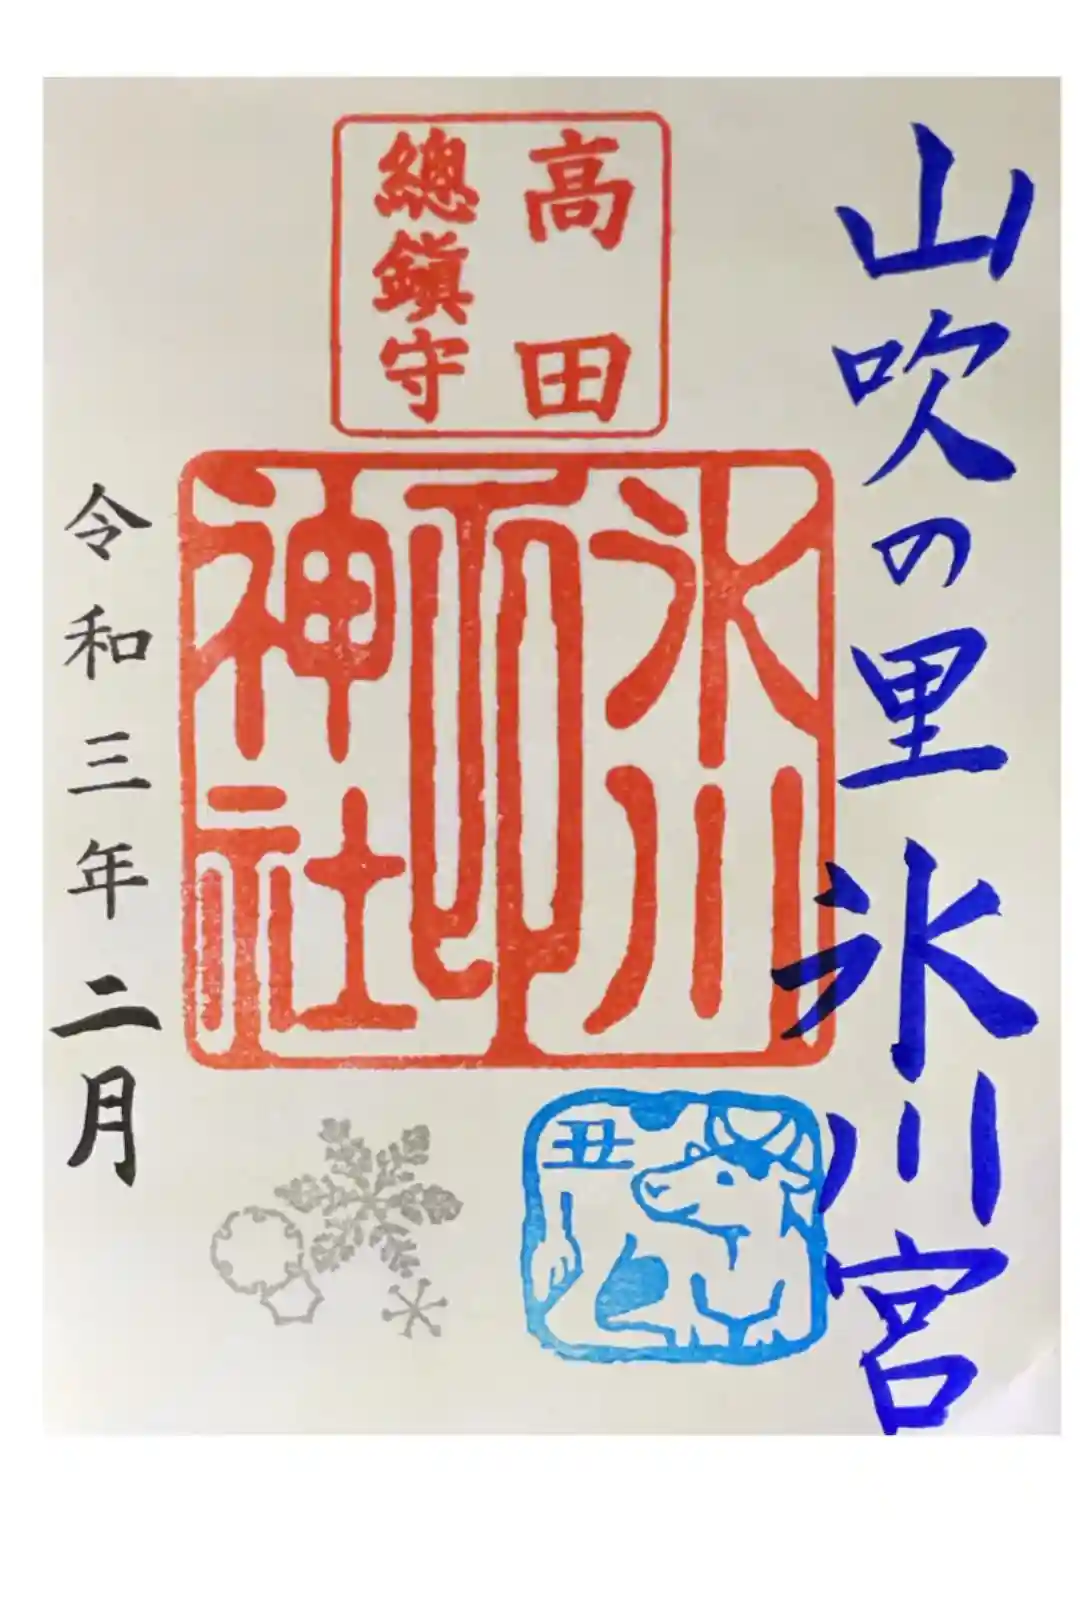 山吹の里 氷川宮
高田
總鎮守
氷川
神社
丑
令和三年二月